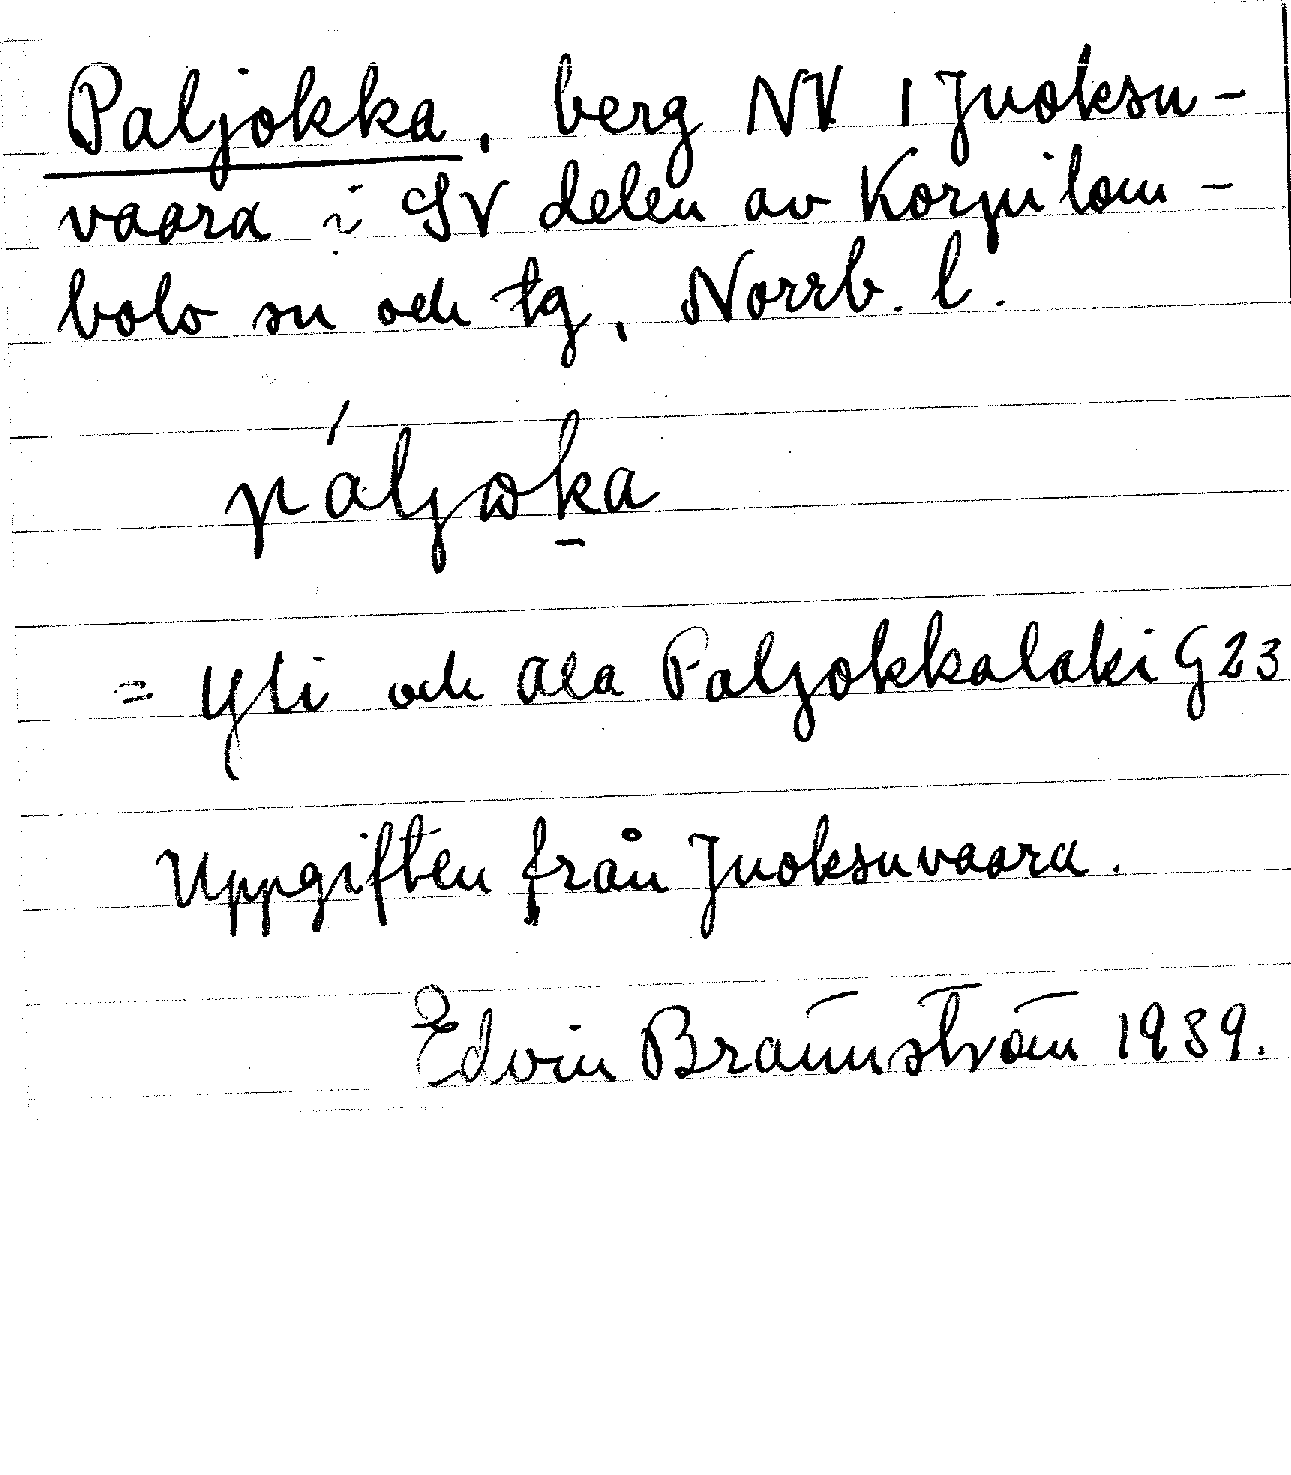 Paljokka, berg NV i Juoksu-
vaara i SV delen av Korpilom-
bolo sn och tg, Norrb. l.
páljωḵa
= Yli och Ala Paljokkalaki G23
Uppgiften från Juoksuvaara.
Edvin Brännström 1939.